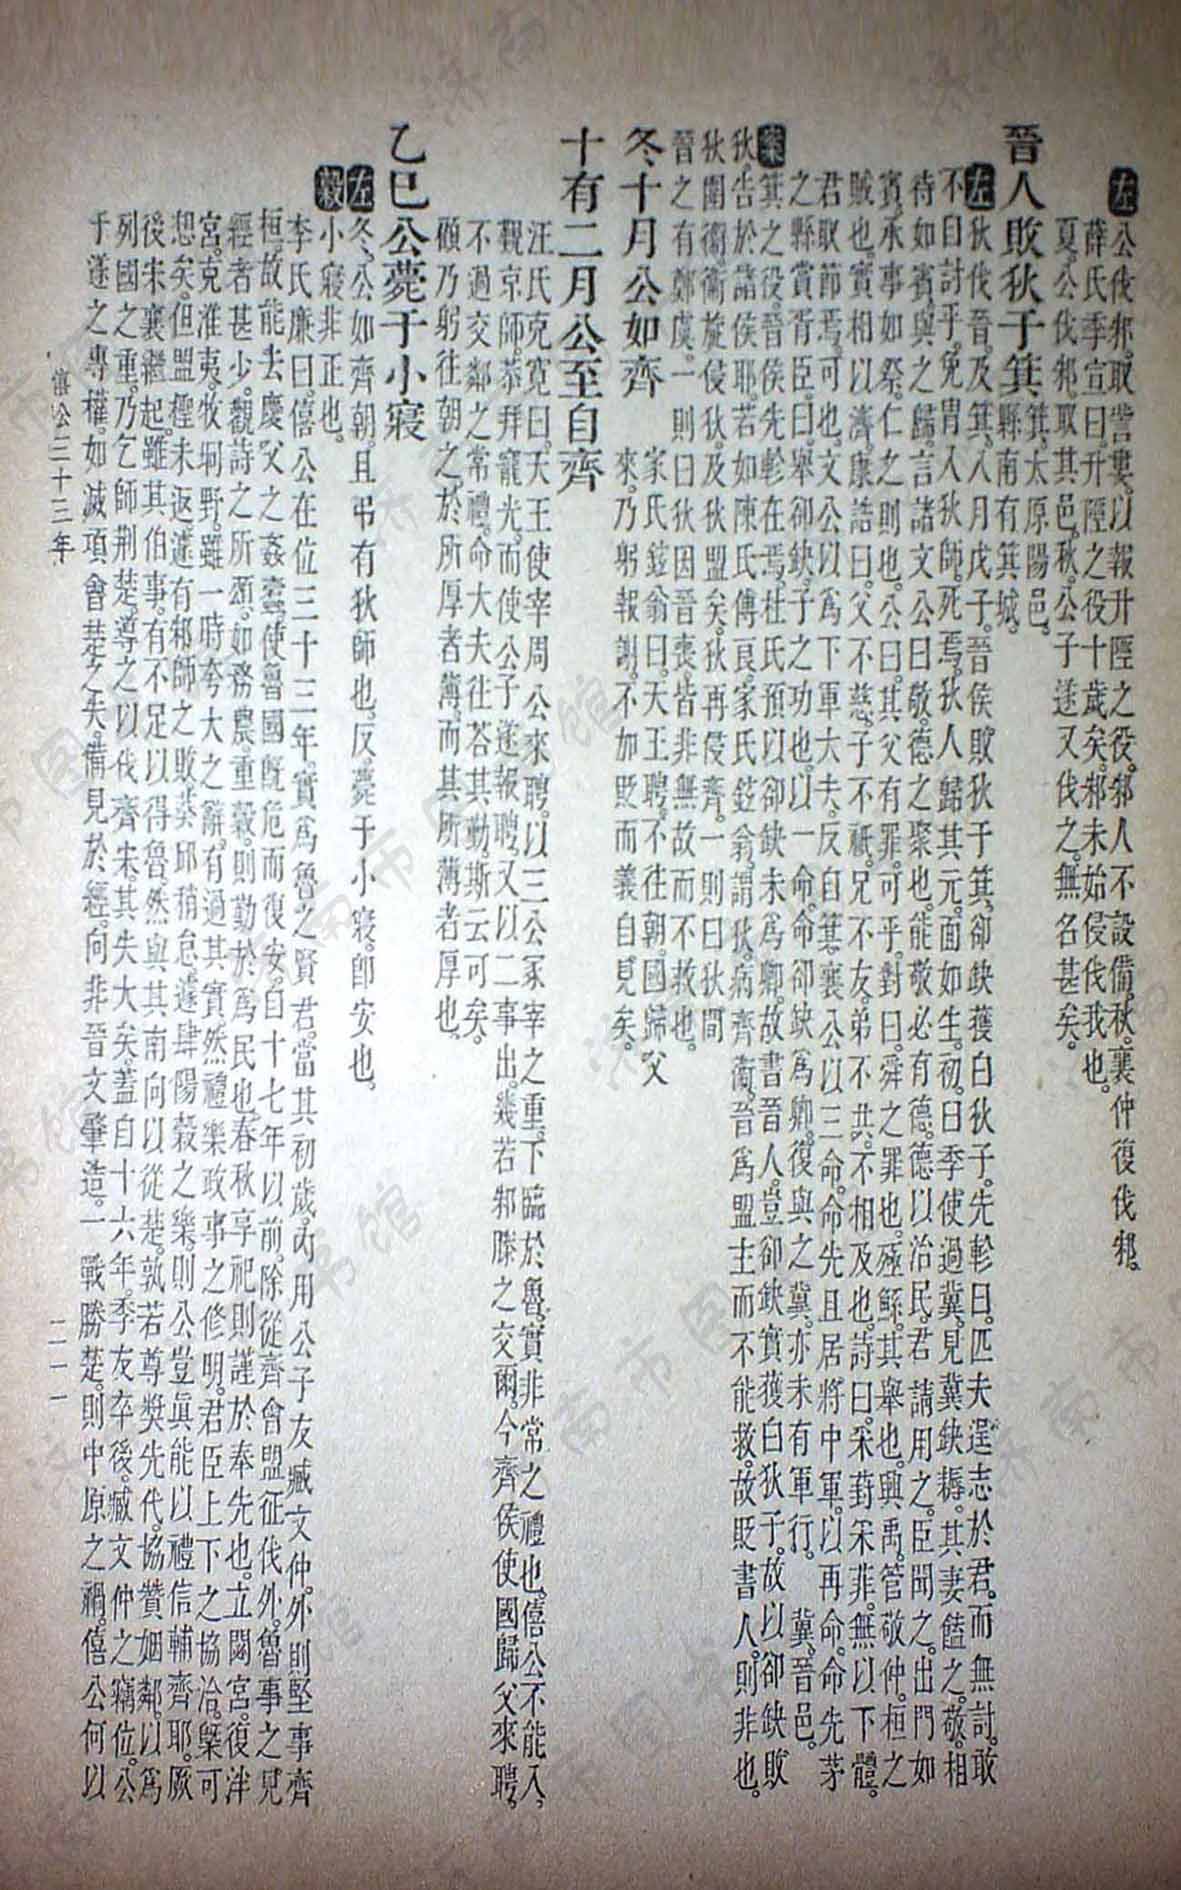 左公伐邾。取訾婁。以報升陘之役。邾人不設備。秋。襄仲復伐邾。
薛氏季宣曰。升陘之役十歲矣。邾未始侵伐我也。
夏公伐邾。取其邑。秋。公子遂又伐之。無名甚矣。
晉人敗狄于箕。箕。太原陽邑
縣南有箕城。
左狄伐晉。及箕。八月戊子。晉侯敗狄于箕。卻缺獲白狄子。先軫曰。匹夫逞志於君。而無討。敢
不自討乎。免胄入狄師。死焉。狄人歸其元。面如生。初。臼季使過冀。見冀缺耨。其妻饁之。敬。相
待如賓。與之歸。言諸文公曰。敬。德之聚也。能敬必有德。德以治民。君請用之。臣聞之。出門如
賓。承事如祭。仁之則也。公曰。其父有罪。可乎。對曰。舜之罪也殛鯀。其舉也興禹。管敬仲。桓之
賊也。實相以濟。康誥曰。父不慈。子不祗。兄不友。弟不共。不相及也。詩曰。采葑采菲。無以下體。
君取節焉可也。文公以爲下軍大夫。反自箕。襄公以三命。命先且居。將中軍。以再命。命先茅
之縣賞胥臣。曰。舉卻缺。子之功也。以一命。命卻缺爲卿。復與之冀。亦未有軍行。冀。晉邑。
案箕之役。晉侯先軫在焉。杜氏預以卻缺未爲卿。故書晉人。豈卻缺實獲白狄子。故以卻缺敗
狄。告於諸侯耶。若如陳氏傅良。家氏鉉翁。謂狄病齊衛。晉爲盟主而不能救。故貶書人。則非也。
狄圍衛。衛旋侵狄。及狄盟矣。狄再侵齊。一則曰狄間
晉之有鄭虞。一則曰狄因晉喪。皆非無故而不救也。
冬十月公如齊 家氏鉉翁曰。天王聘。不往朝。國歸父
來。乃躬報謝。不加貶而義自見矣。
十有二月公至自齊
汪氏克寬曰。天王使宰周公來聘。以三公冢宰之重。下臨於魯。實非常之禮也。僖公不能入
覲京師。恭拜寵光。而使公子遂報聘。又以二事出。幾若邾滕之交爾。今齊侯使國歸父來聘。
不過交鄰之常禮。命大夫往荅其勤。斯云可矣。
顧乃躬往朝之。於所厚者薄。而其所薄者厚也。
乙巳公薨于小寢
左冬。公如齊朝。且弔有狄師也。反。薨于小寢。卽安也。
穀小寢非正也。
李氏廉曰。僖公在位三十三年。實爲魯之賢君。當其初歲。內用公子友臧文仲。外則堅事齊
桓。故能去慶父之姦蠹。使魯國旣危而復安。自十七年以前。除從齊會盟征伐外。魯事之見
經者甚少。觀詩之所頌。如務農重穀。則勤於爲民也。春秋享祀則謹於奉先也。立閟宮。復泮
宮。克淮夷。牧坰野。雖一時夸大之辭。有過其實。然禮樂政事之修明。君臣上下之協洽。槩可
想矣。但盟檉未返。遽有邾師之敗。葵邱稍怠。遽肆陽穀之樂。則公豈眞能以禮信輔齊耶。厥
後宋襄繼起。雖其伯事。有不足以得魯。然與其南向以從楚。孰若尊獎先代。協贊姻鄰。以爲
列國之重。乃乞師荆楚。導之以伐齊宋。其失大矣。蓋自十六年。季友卒後。臧文仲之竊位。公
于遂之專權。如滅項會楚之失。備見於經。向非晉文肇造。一戰勝楚。則中原之禍。僖公何以
僖公三十三年
二一一